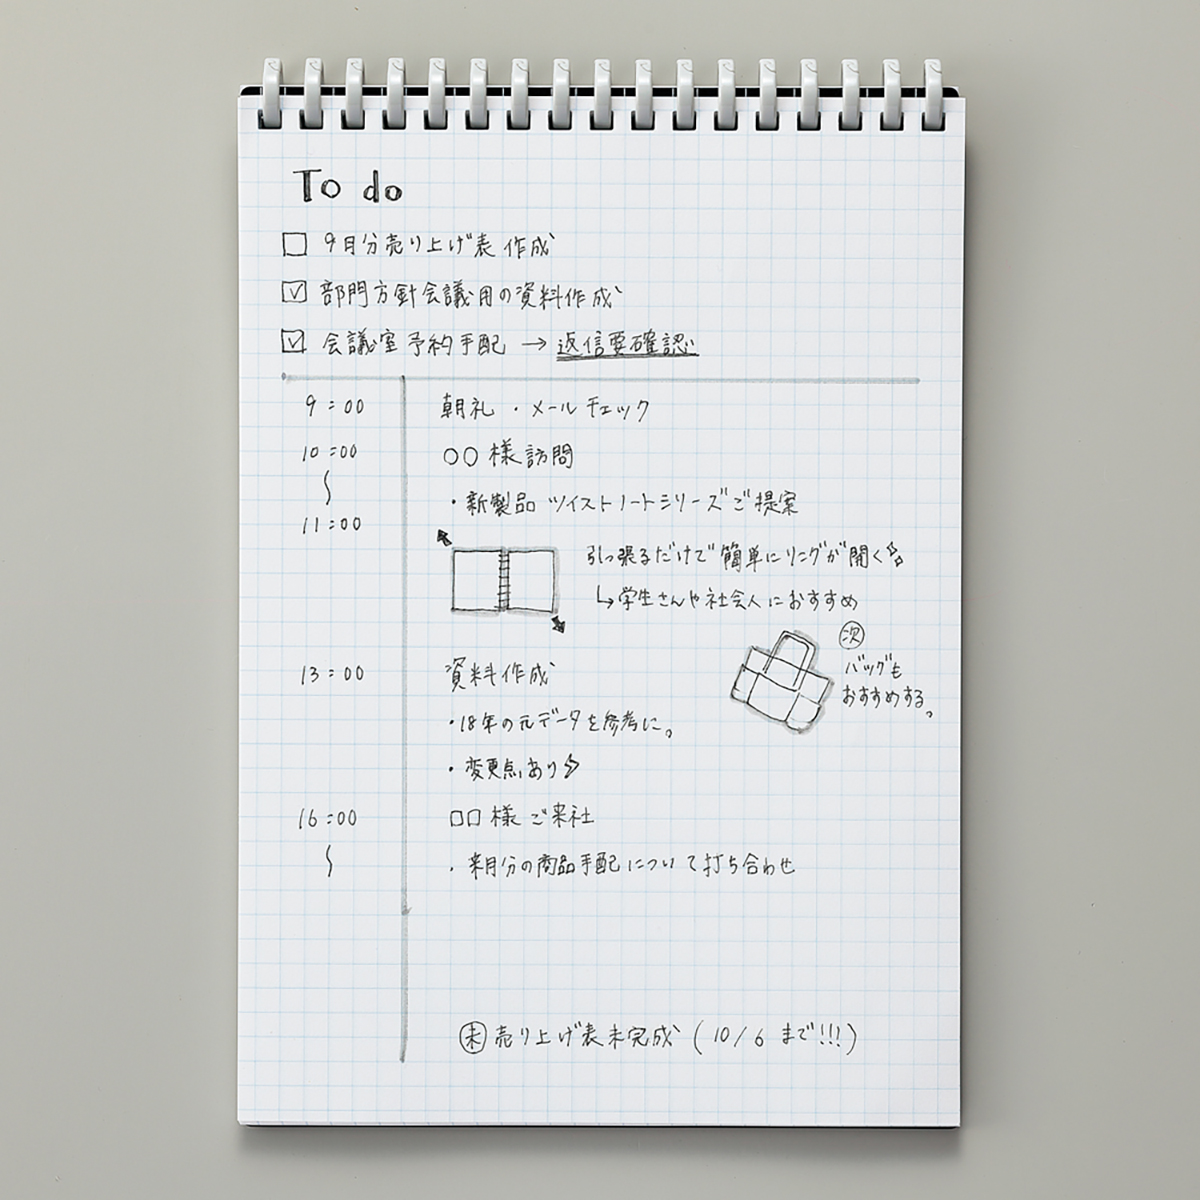 To do
□ 9月分売り上げ表 作成
☑ 部門方針会議用の資料作成
☑ 会議室予約手配 → 返信要確認
9:00 朝礼・メールチェック
10:00 ○○様訪問
〜
・新製品 ツイストノートシリーズご提案
11:00
引っ張るだけで簡単にリングが開く
↳学生さんや社会人におすすめ
次
バッグも
おすすめする。
13:00 資料作成
・18年の元データを参考に。
・変更点あり
16:00 □□様ご来社
〜
・来月分の商品手配について打ち合わせ
未 売り上げ表未完成 (10/6 まで!!!)